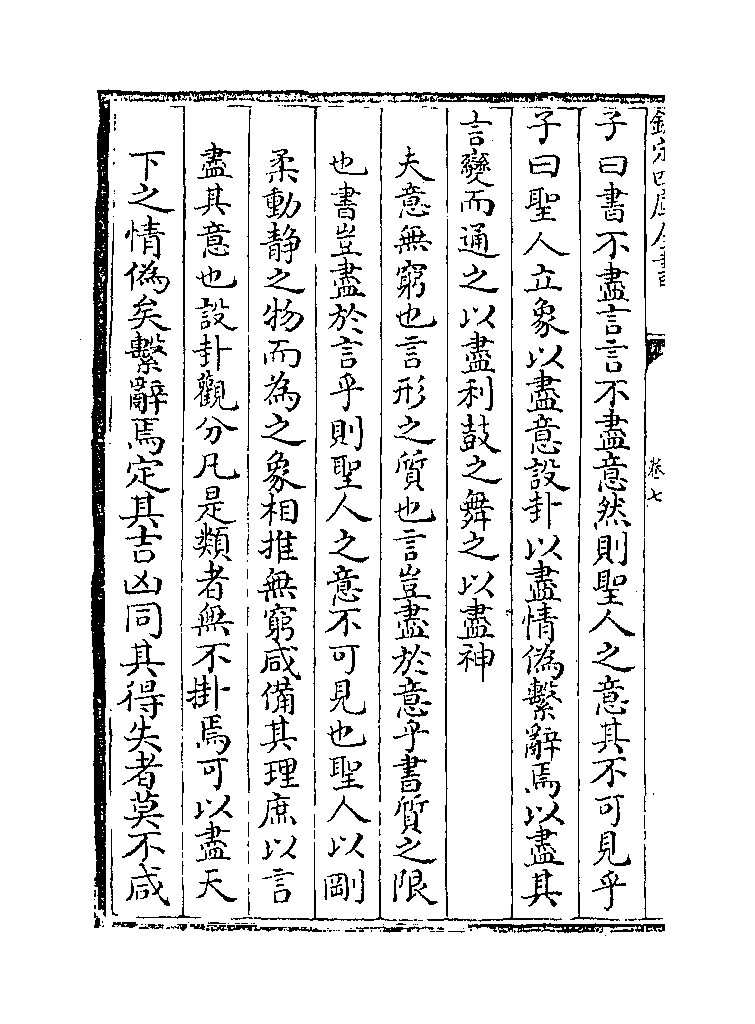 欽定四庫全書
卷七
子曰書不盡言言不盡意然則聖人之意其不可見乎
子曰聖人立象以盡意設卦以盡情偽繫辭焉以盡其
言變而通之以盡利鼓之舞之以盡神
夫意無窮也言形之質也言豈盡於意乎書質之限
也書豈盡於言乎則聖人之意不可見也聖人以剛
柔動靜之物而為之象相推無窮咸備其理庶以言
盡其意也設卦觀分凡是類者無不掛焉可以盡天
下之情偽矣繫辭焉定其吉凶同其得失者莫不咸